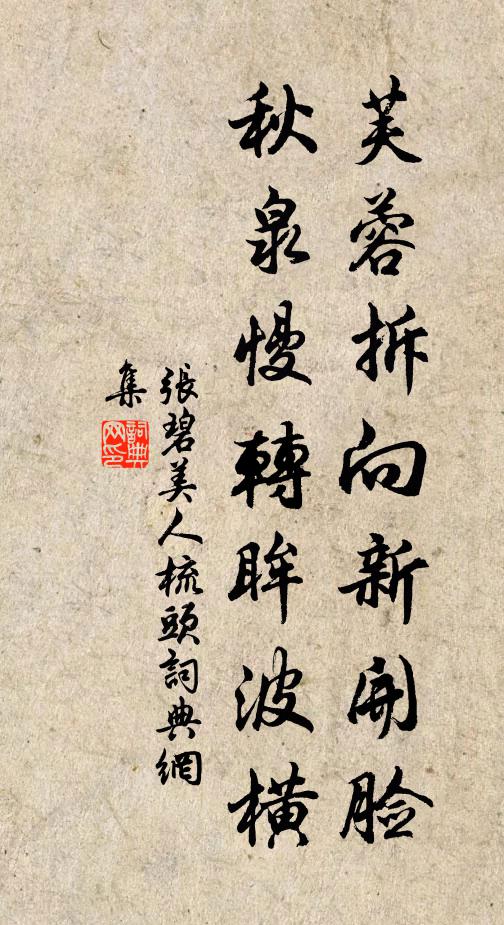 芙蓉拆向新開脸
秋泉慢轉眸波橫
張碧美人梳頭詞典網
集
詞典网印